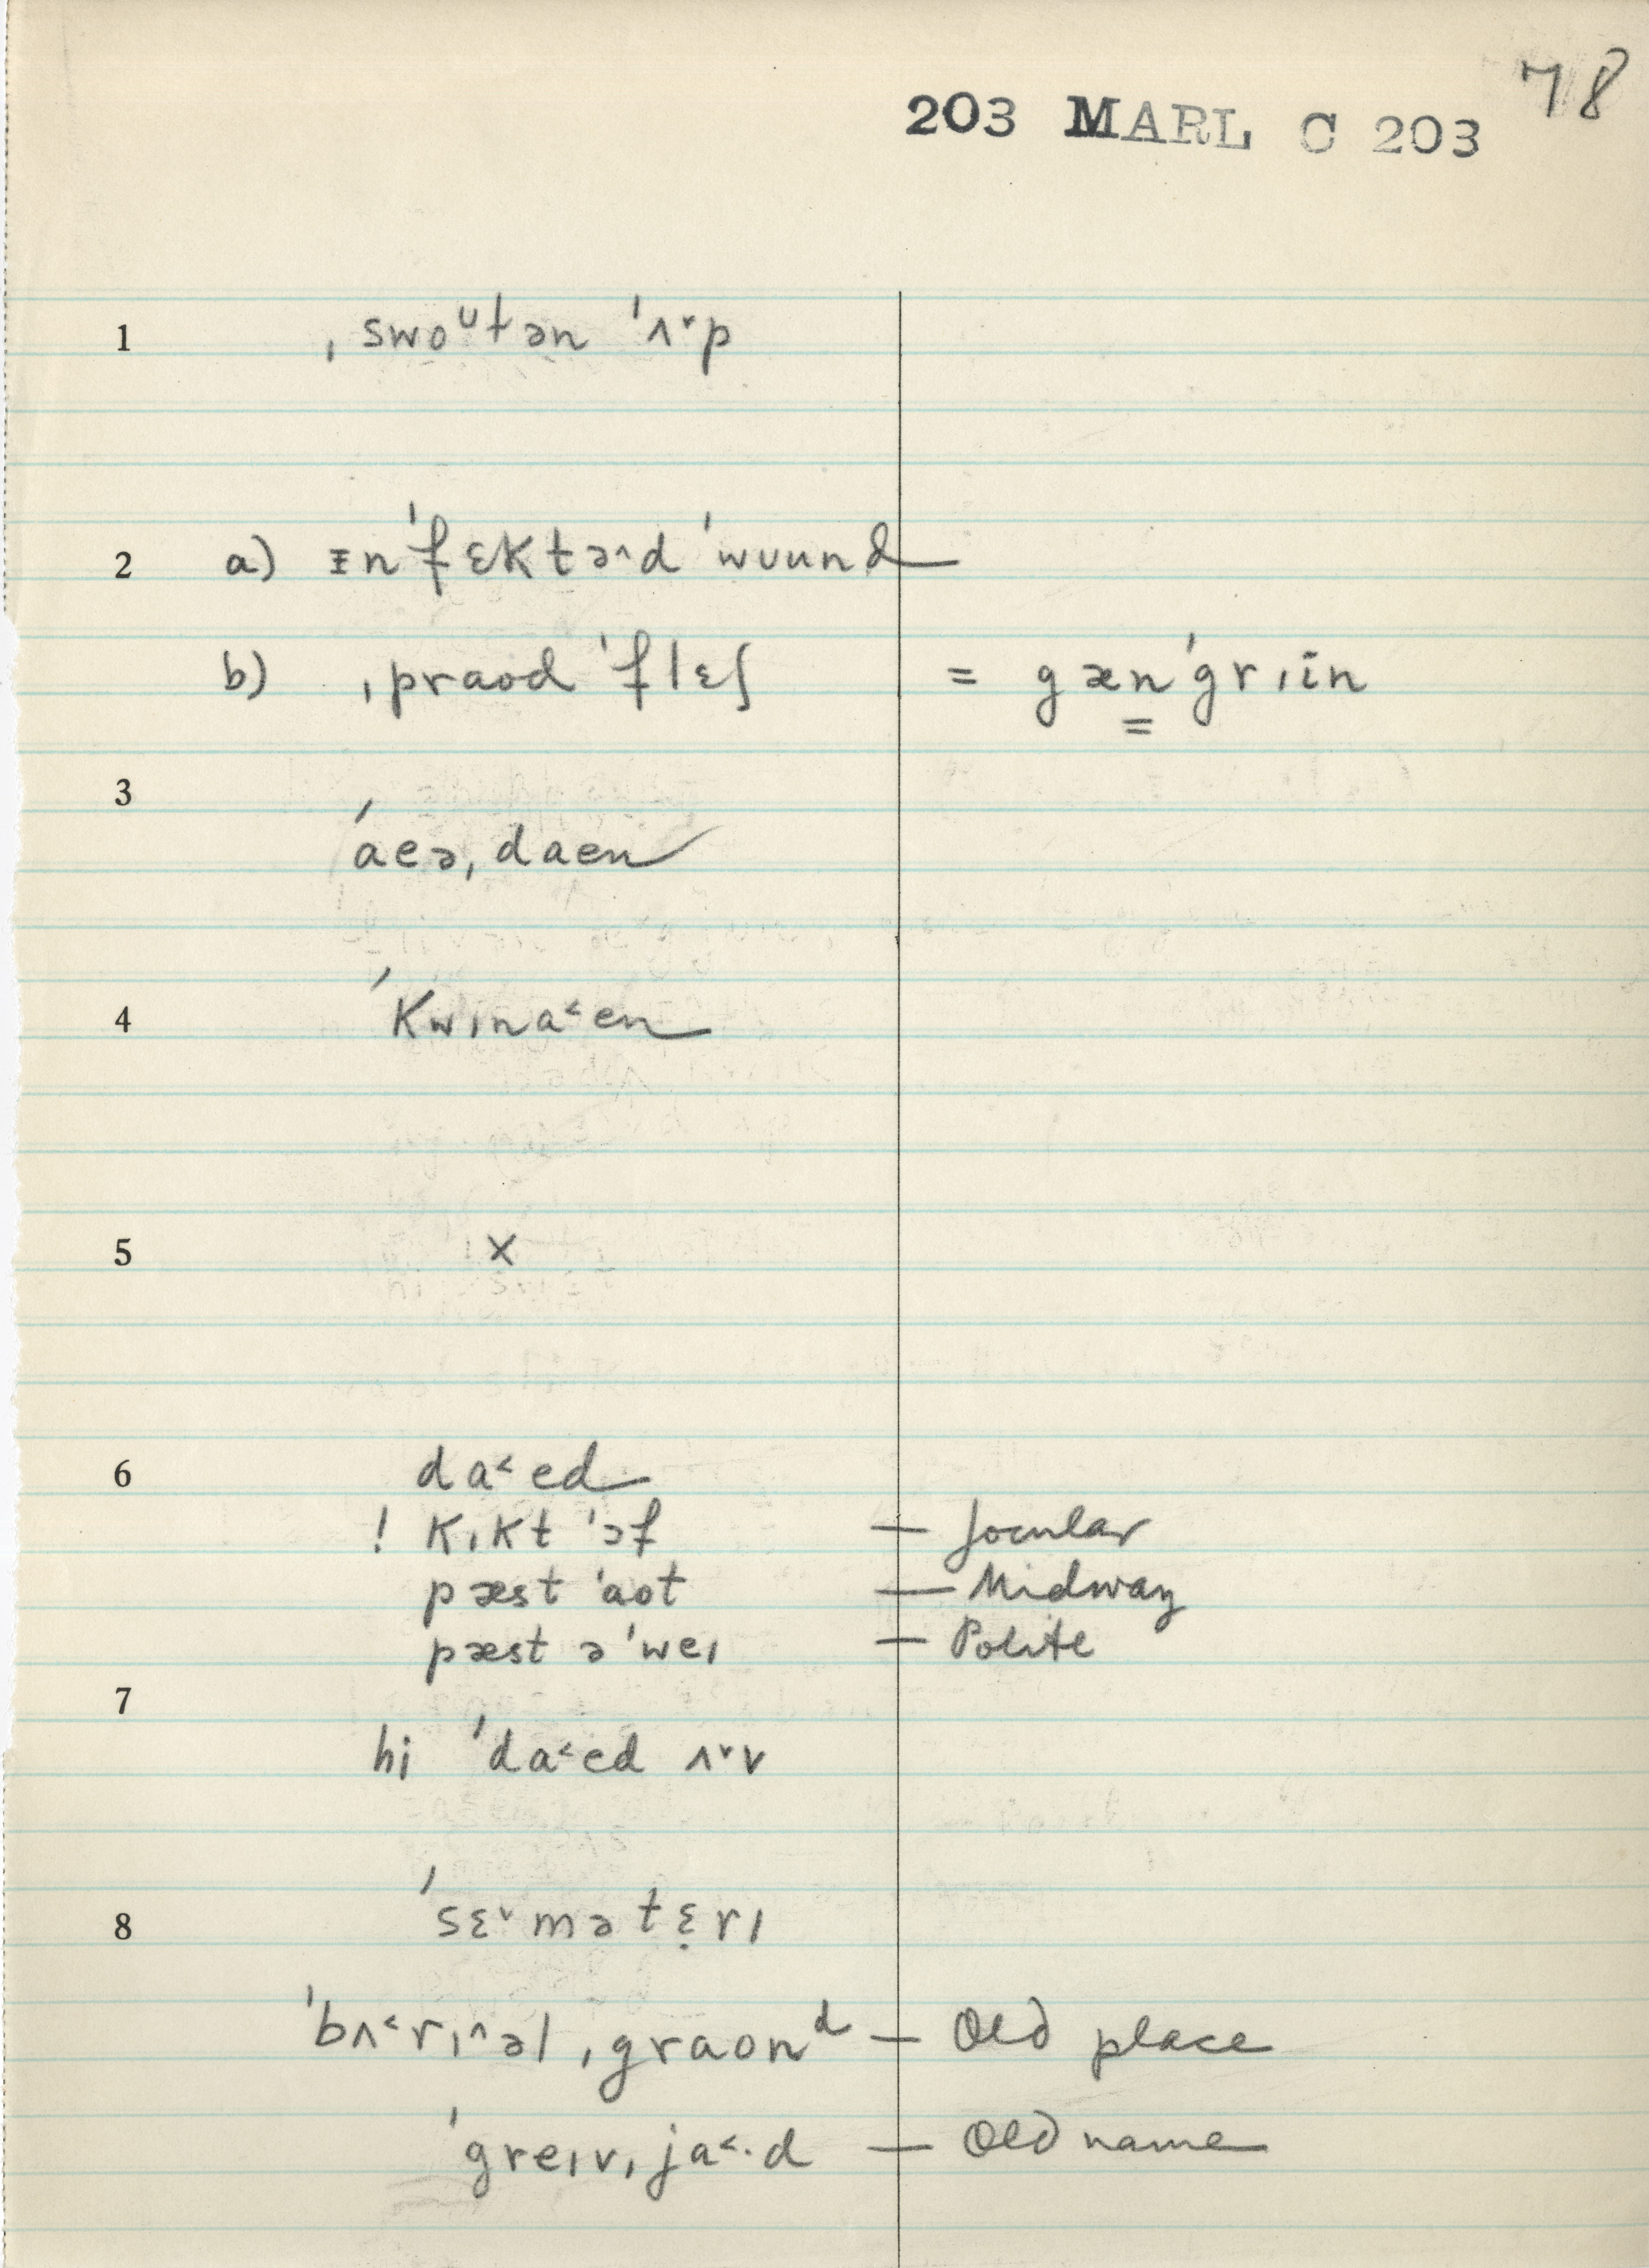 78
203 MARL C 203
1 ˌswoᶷtən ˈʌ˅p
2 a) ɪnˈfɛktə^d ˈwuund
b) ˌpraod ˈflɛʃ = gænˈgrɪin
3
ˈaeəˌdaen
4 ˈkwɪna˂en
5 x
6 da˂ed
! kɪkt ˈɔf — Jocular
pæst ˈaot — Midway
pæst əˈweɪ — Polite
7
hi ˈda˂ed ʌ˅v
8 ˈsɛ˅mətɛ̣rɪ
ˈbʌ˂rɪ^əl ˌgraonᵈ — Old place
ˈgreɪvˌja˂·d — Old name